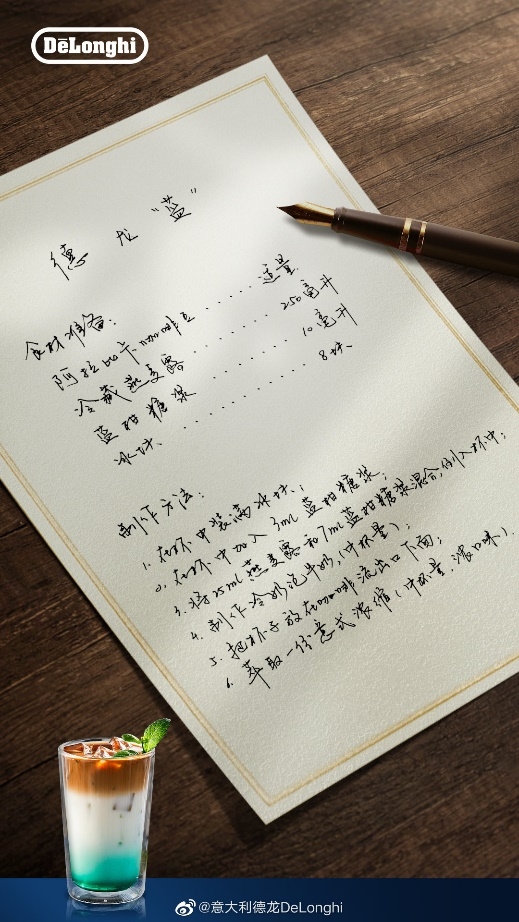 DēLonghi
德龙“蓝”
食材准备：
阿拉比卡咖啡豆......适量
冷藏燕麦露.......250毫升
蓝柑糖浆........10毫升
冰块..........8块
制作方法：
1. 在杯中装满冰块；
2. 在杯中加入3mL蓝柑糖浆；
3. 将25mL燕麦露和7mL蓝柑糖浆混合，倒入杯中；
4. 制作冷奶泡牛奶，(中杯量)；
5. 把杯子放在咖啡流出口下面；
6. 萃取一份意式浓缩(中杯量，浓口味).
@意大利德龙DeLonghi